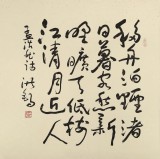 移舟泊煙渚
日暮客愁新
野曠天低樹
江清月近人
孟浩然詩